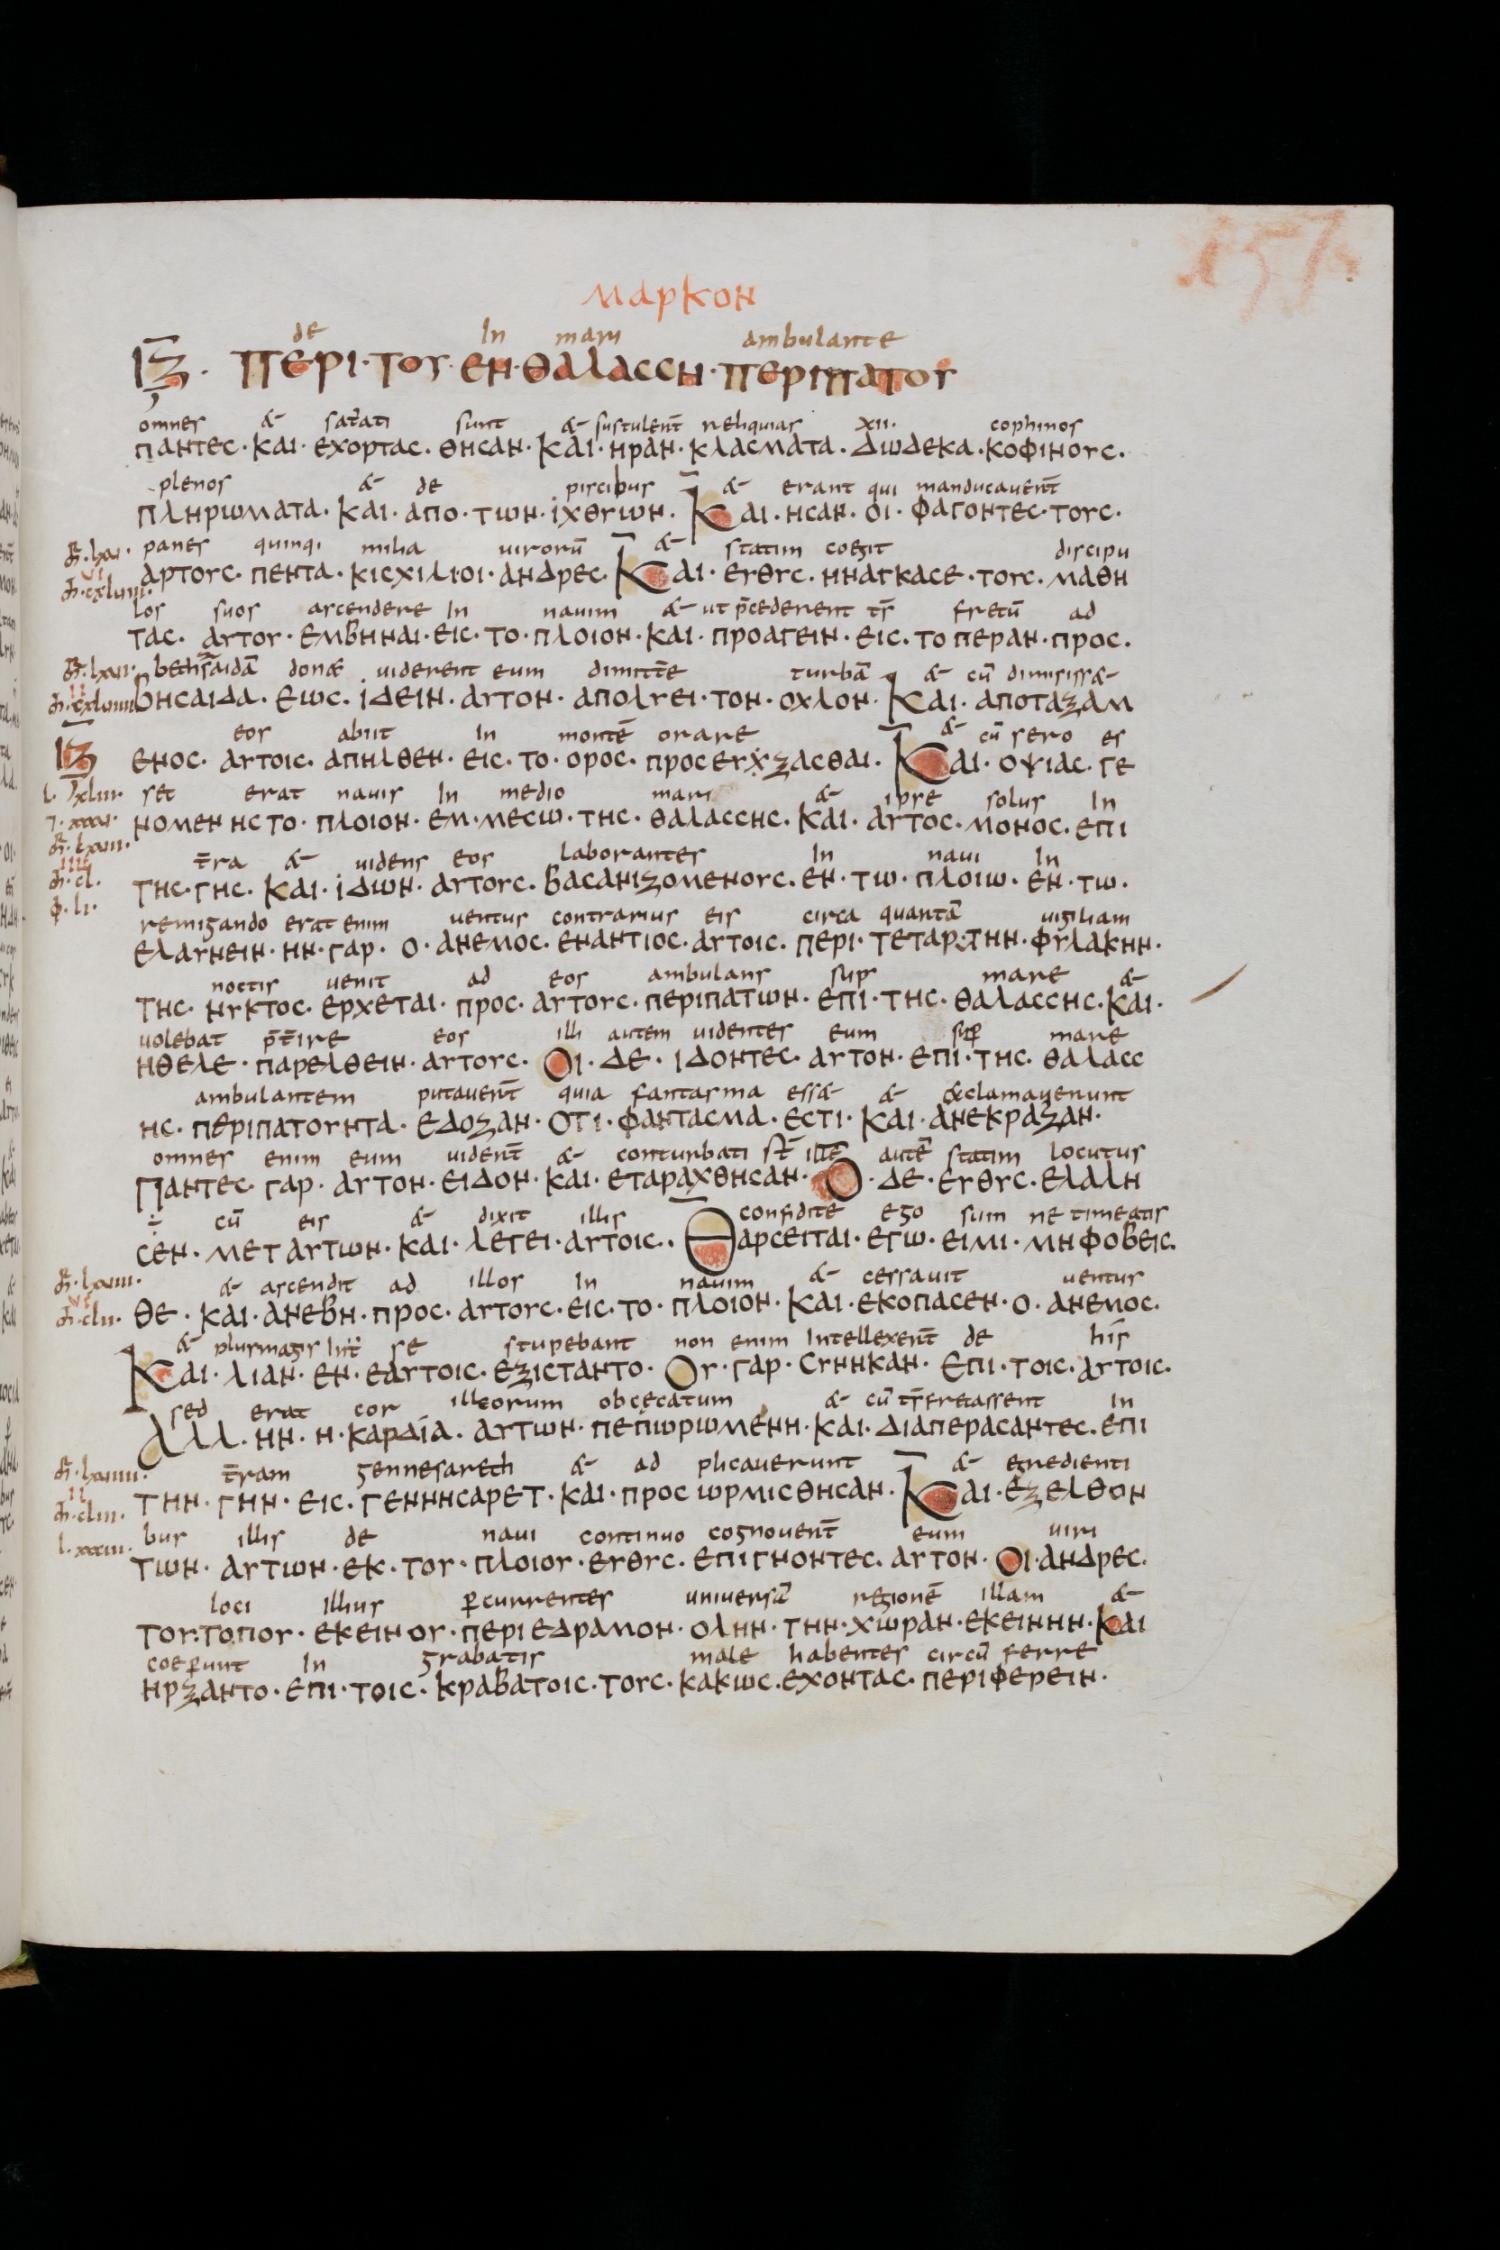 157
ΜΑΡΚΟΝ
de In mari ambulante
ΙϚ · ΠΕΡΙ · ΤΟΥ · ΕΝ · ΘΑΛΑССΗ · ΠΕΡΙΠΑΤΟΥ
omnes & sat̄ati sunt & sustulert̄ reliquias xii· cophinos
ΠΑΝΤΕС · ΚΑΙ · ΕΧΟΡΤΑС · ΘΗСΑΝ · ΚΑΙ · ΗΡΑΝ · ΚΛΑСΜΑΤΑ · ΔΙΩΔΕΚΑ · ΚΟΦΙΝΟΥС ·
plenos & de piscibus & erant qui manducavert̄
ΠΛΗΡΩΜΑΤΑ · ΚΑΙ · ΑΠΟ · ΤΩΝ · ΙΧΘΥΩΝ · ΚΑΙ · ΗСΑΝ · ΟΙ · ΦΑΓΟΝΤΕС · ΤΟΥС ·
panes quinqi milia virorū & statim coegit discipu
ΑΡΤΟΥС · ΠΕΝΤΑ · ΚΙСΧΙΛΙ·ΟΙ · ΑΝΔΡΕС · ΚΑΙ · ΕΥΘΥС · ΗΝΑΓΚΑСΕ · ΤΟΥС · ΜΑΘΗ
los suos ascendere In navim & ut p̄cederent tr̄s fretū ad
ΤΑС · ΑΥΤΟΥ · ΕΜΒΗΝΑΙ · ΕΙС · ΤΟ · ΠΛΟΙΟΝ · ΚΑΙ · ΠΡΟΑΓΕΙΝ · ΕΙС · ΤΟ ΠΕΡΑΝ · ΠΡΟС ·
bethsaidā don& viderent eum dimitte turbā & cū dimisiss&
ΒΗСΑΙΔΑ · ΕΩС · ΙΔΕΙΝ · ΑΥΤΟΝ · ΑΠΟΛΥΕΙ · ΤΟΝ · ΟΧΛΟΝ · ΚΑΙ · ΑΠΟΤΑΞΑΜ
eos abiit In montē orare & cū sero es
ΙϚ ΕΝΟС · ΑΥΤΟΙС · ΑΠΗΛΘΕΝ · ΕΙС · ΤΟ · ΟΡΟС · ΠΡΟСΕΥΧΞΑСΘΑΙ · ΚΑΙ · ΟΨΙΑС · ΓΕ
set erat navis In medio mari & ipse solus In
ΝΟΜΕΝ ΗС ΤΟ · ΠΛΟΙΟΝ · ΕΜ · ΜΕСΩ · ΤΗС · ΘΑΛΑССΗС · ΚΑΙ · ΑΥΤΟС · ΜΟΝΟС · ΕΠΙ
t̄ra & videns eos laborantes In navi In
ΤΗС · ΓΗС · ΚΑΙ · ΙΔΩΝ · ΑΥΤΟΥС · ΒΑСΑΝΙΖΟΜΕΝΟΥС · ΕΝ · ΤΩ · ΠΛΟΙΩ · ΕΝ · ΤΩ ·
remigando erat enim ventus contrarius eis circa quartā vigiliam
ΕΛΑΥΝΕΙΝ · ΗΝ · ΓΑΡ · Ο · ΑΝΕΜΟС · ΕΝΑΝΤΙΟС · ΑΥΤΟΙС · ΠΕΡΙ · ΤΕΤΑΡ·ΤΗΝ · ΦΥΛΑΚΗΝ ·
noctis venit ad eos ambulans sup mare &
ΤΗС · ΝΥΚΤΟС · ΕΡΧΕΤΑΙ · ΠΡΟС · ΑΥΤΟΥС · ΠΕΡΙΠΑΤΩΝ · ΕΠΙ · ΤΗС · ΘΑΛΑССΗС · ΚΑΙ ·
volebat p̄t̄ire eos illi autem videntes eum sup̄ mare
ΗΘΕΛΕ · ΠΑΡΕΛΘΕΙΝ · ΑΥΤΟΥС · ΟΙ · ΔΕ · ΙΔΟΝΤΕС · ΑΥΤΟΝ · ΕΠΙ · ΤΗС · ΘΑΛΑСС
ambulantem putavert̄ quia fantasma ess& & &clamaverunt
ΗС · ΠΕΡΙΠΑΤΟΥΝΤΑ · ΕΔΟΞΑΝ · ΟΤΙ · ΦΑΝΤΑСΜΑ · ΕСΤΙ · ΚΑΙ · ΑΝΕΚΡΑΞΑΝ ·
omnes enim eum vidert̄ & conturbati st̄ ille autē statim locutus
ΠΑΝΤΕС · ΓΑΡ · ΑΥΤΟΝ · ΕΙΔΟΝ · ΚΑΙ · ΕΤΑΡΑΧΘΗСΑΝ · Ο · ΔΕ · ΕΥΘΥС · ΕΛΑΛΗ
÷ cū eis & dixit illis confidite ego sum ne timeatis
СΕΝ · ΜΕΤ ΑΥΤΩΝ · ΚΑΙ · ΛΕΓΕΙ · ΑΥΤΟΙС · ΘΑΡСΕΙΤΑΙ · ΕΓΩ · ΕΙΜΙ · ΜΗ ΦΟΒΕΙС·
& ascendit ad illos In navim & cessavit ventus
ΘΕ · ΚΑΙ · ΑΝΕΒΗ · ΠΡΟС · ΑΥΤΟΥС · ΕΙС · ΤΟ · ΠΛΟΙΟΝ · ΚΑΙ · ΕΚΟΠΑСΕΝ · Ο · ΑΝΕΜΟС ·
& plusmagis Int̄ se stupebant non enim Intellexert̄ de his
ΚΑΙ · ΛΙΑΝ · ΕΝ · ΕΑΥΤΟΙС · ΕΞΙСΤΑΝΤΟ · ΟΥ · ΓΑΡ · СΥΝΗΚΑΝ · ΕΠΙ · ΤΟΙС · ΑΡΤΟΙС ·
sed erat cor illorum obcecatum & cū tr̄sfretassent In
ΑΛΛ · ΗΝ · Η · ΚΑΡΔΙΑ · ΑΥΤΩΝ · ΠΕΠΩΡΩΜΕΝΗ · ΚΑΙ · ΔΙΑΠΕΡΑСΑΝΤΕС · ΕΠΙ
t̄ram gennesareth & ad plicaverunt & egredienti
ΤΗΝ · ΓΗΝ · ΕΙС · ΓΕΝΝΗСΑΡΕΤ · ΚΑΙ · ΠΡΟС ΩΡΜΙСΘΗСΑΝ · ΚΑΙ · ΕΞΕΛΘΟΝ
bus illis de navi continuo cognovert̄ eum viri
ΤΩΝ · ΑΥΤΩΝ · ΕΚ · ΤΟΥ · ΠΛΟΙΟΥ · ΕΥΘΥС · ΕΠΙΓΝΟΝΤΕС · ΑΥΤΟΝ · ΟΙ · ΑΝΔΡΕС ·
loci illius p̄currentes universā regionē illam &
ΤΟΥ·ΤΟΠΟΥ · ΕΚΕΙΝΟΥ · ΠΕΡΙΕΔΡΑΜΟΝ · ΟΛΗΝ · ΤΗΝ · ΧΩΡΑΝ · ΕΚΕΙΝΗΝ · ΚΑΙ
coep̄unt In grabatis male habentes circū ferre
ΗΡΞΑΝΤΟ · ΕΠΙ · ΤΟΙС · ΚΡΑΒΑΤΟΙС · ΤΟΥС · ΚΑΚΩС · ΕΧΟΝΤΑС · ΠΕΡΙΦΕΡΕΙΝ ·